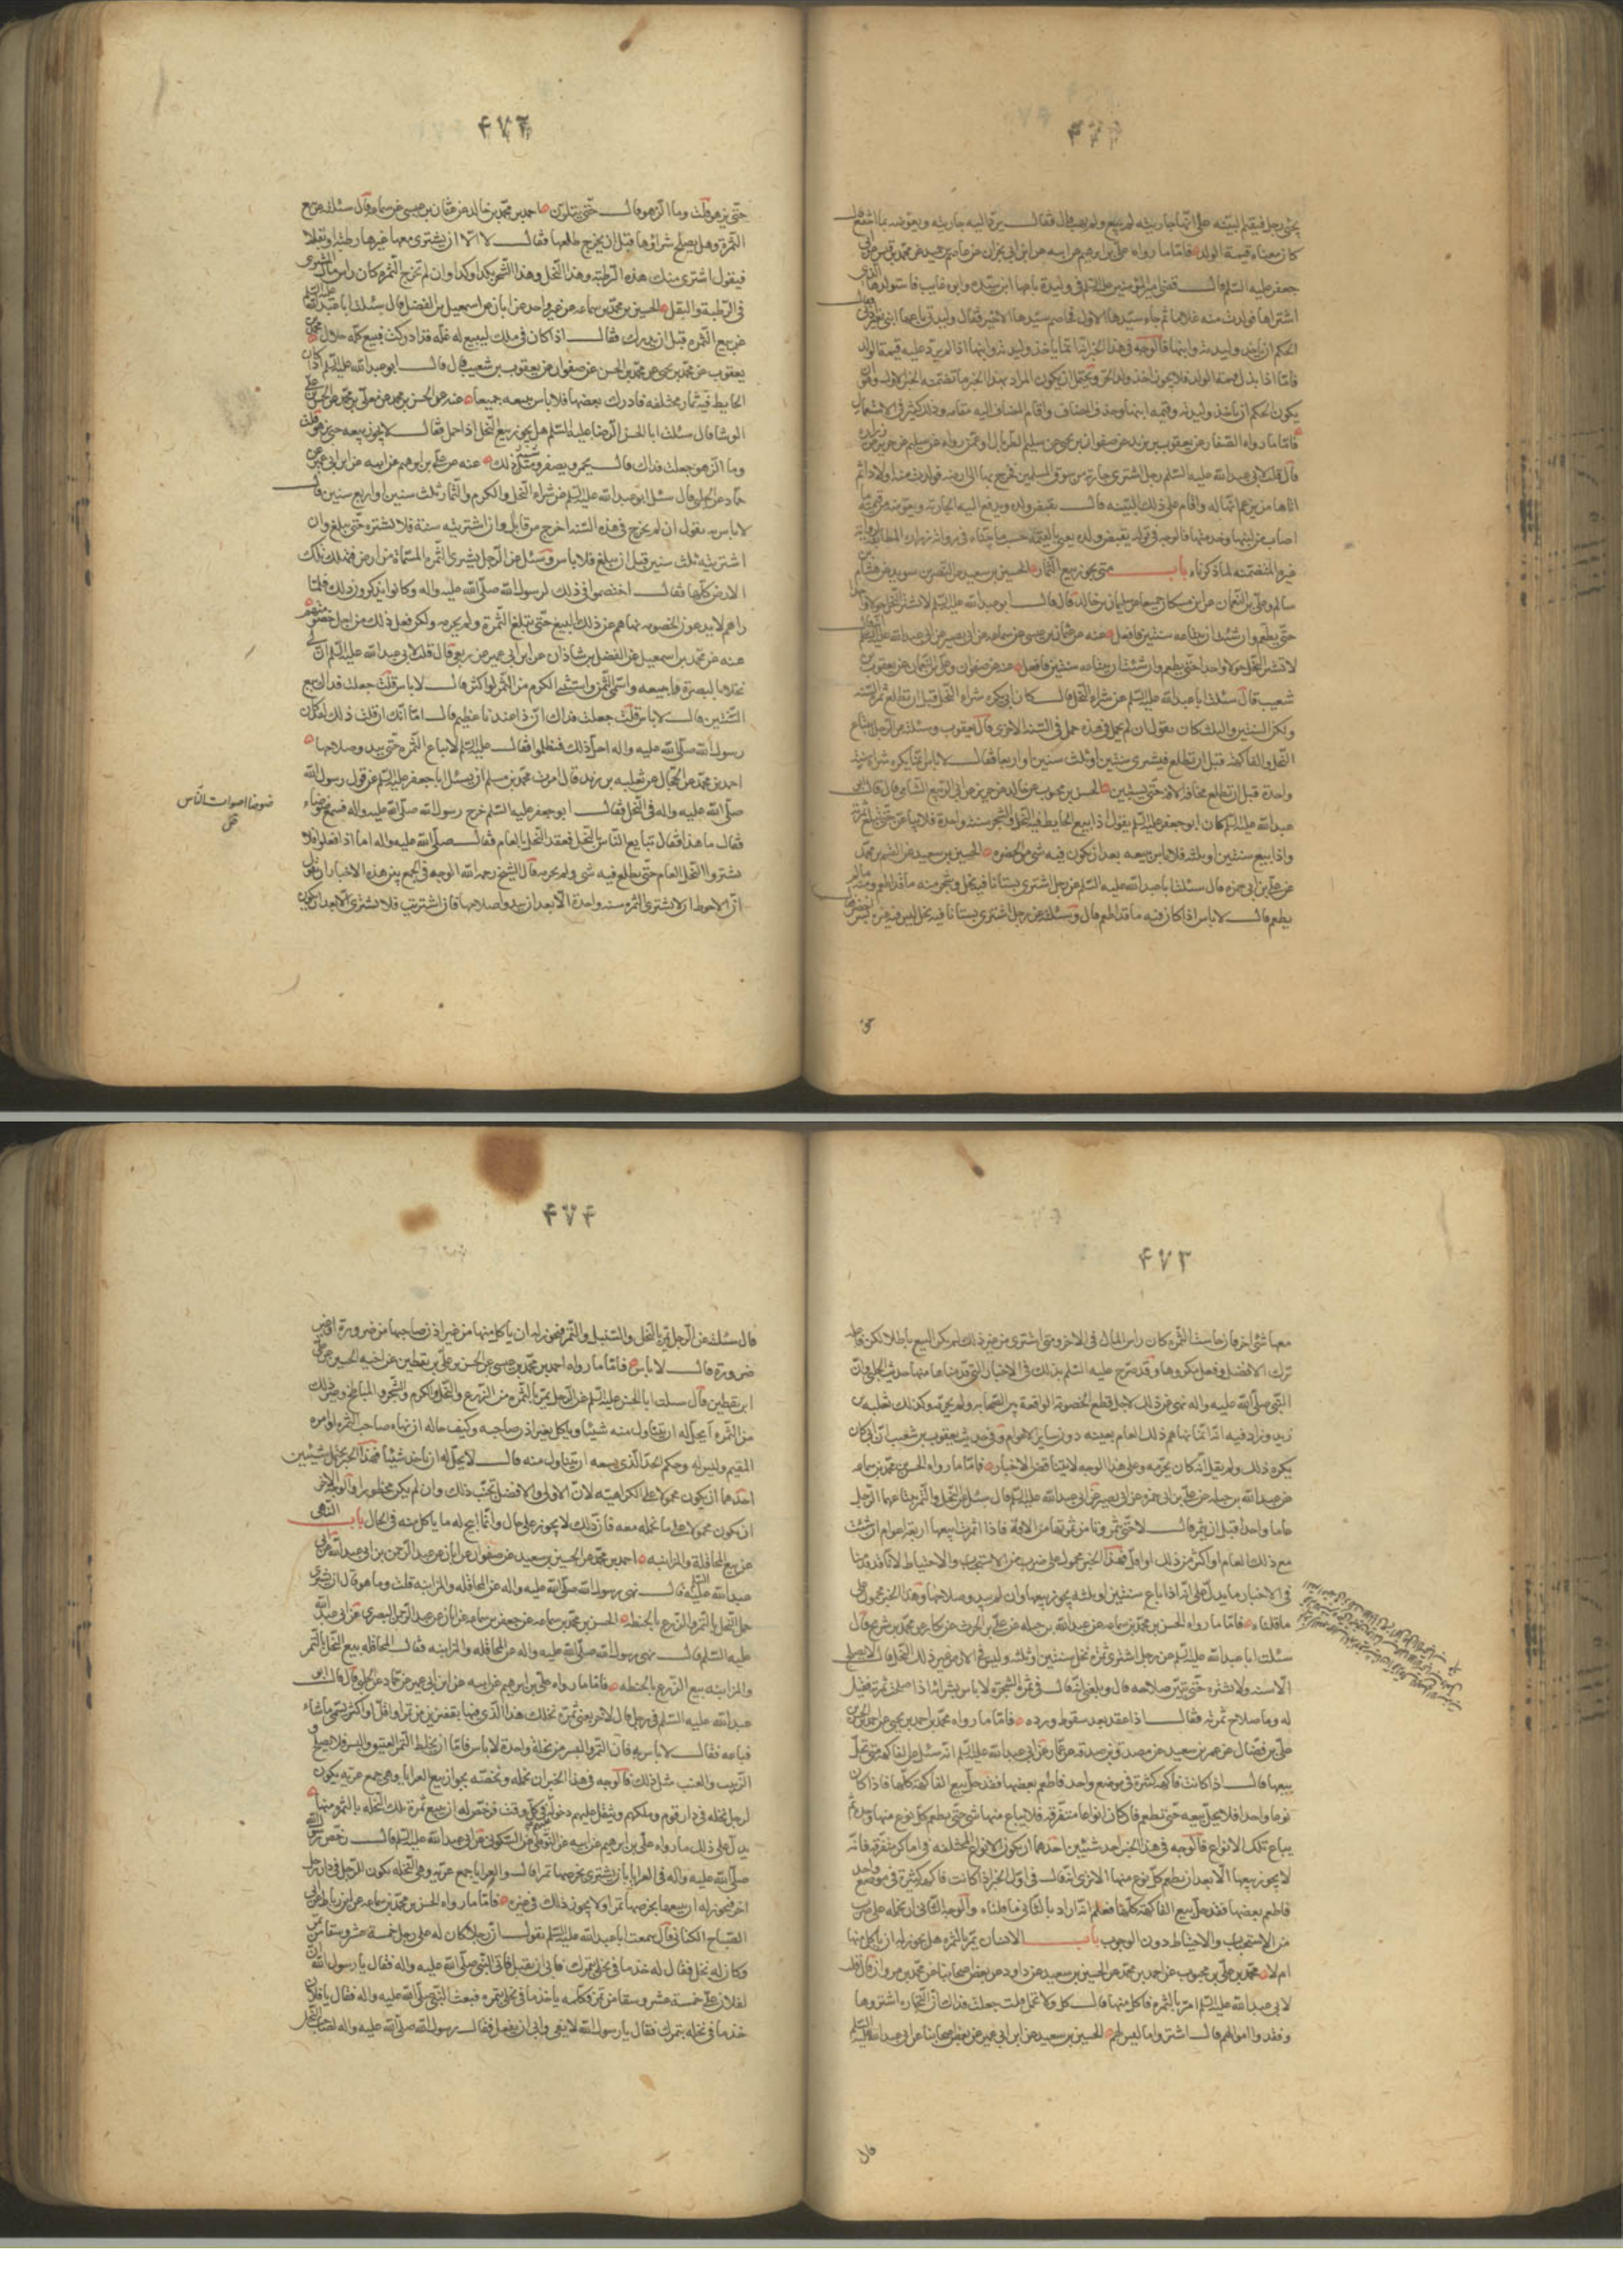 ۴۷۱
يجئ رجل فيقيم البينة على انها جاريته لم يبع ولم يهب قال فقال يرد اليه جاريته ويعوضه بما انتفع قال
كان معناه قيمة الولد فاما ما رواه علي بن ابراهيم عن ابيه عن ابن ابي نجران عن عاصم بن حميد عن محمد بن قيس عن ابي
جعفر عليه السلم قال قضى امير المؤمنين عليه السلم في وليدة باعها ابن سيدها وابوه غايب فاستولدها الذي
اشتراها فولدت منه غلاما ثم جاء سيدها الاول فخاصم سيدها الاخير فقال وليدتي باعها ابني بغير اذني فقال
الحكم ان ياخذ وليدته وابنها فالوجه في هذا الخبر انه انما ياخذ وليدته وابنها اذا لم يرد عليه قيمة الولد
فاما اذا بذل قيمة الولد فلا يجوز اخذ ولد الحر ويحتمل ان يكون المراد بهذا الخبر ما تضمنه الخبر الاول وان
يكون الحكم ان ياخذ وليدته وقيمة ابنها وحذف المضاف واقام المضاف اليه مقامه وذلك كثير في الاستعمال
فاما ما رواه الصفار عن يعقوب بن يزيد عن صفوان بن يحيى عن سليم الطربال او عمن رواه عن سليم عن حريز عن زرارة
قال قلت لابي عبد الله عليه السلم رجل اشترى جارية من سوق المسلمين فخرج بها الى ارضه فولدت منه اولادا ثم
اتاها من يزعم انها له واقام على ذلك البينة قال يقبض ولده ويدفع اليه الجارية ويعوضه من قيمة ما
اصاب من لبنها وخدمتها فالوجه في قوله يقبض ولده يعني بالقيمة حسب ما بيناه في رواية زرارة المطابقة
غيره المتضمنة لما ذكرناه باب متى يجوز بيع الثمار الحسين بن سعيد عن النضر بن سويد عن هشام
سالم وعلي بن النعمان عن ابن مسكان جميعا عن سليمان بن خالد قال قال ابو عبد الله عليه السلم لا تشتر النخل حولا واحدا
حتى يطعم وان شئت ان تبتاعه سنتين فافعل عنه عن عثمان بن عيسى عن سماعة عن ابي بصير عن ابي عبد الله عليه السلم قال
لا تشتر النخل حولا واحدا حتى يطعم وان شئت ان تبتاعه سنتين فافعل عنه عن صفوان وعلي بن النعمان عن يعقوب بن
شعيب قال سئلت ابا عبد الله عليه السلم عن شراء النخل فقال كان ابي يكره شراء النخل قبل ان تطلع ثمرة السنة
ولكن السنتين والثلث كان يقول ان لم يحمل في هذه حمل في السنة الاخرى قال يعقوب وسئلته عن الرجل يبتاع
النخل والفاكهة قبل ان تطلع فيشتري سنتين او ثلث سنين او اربعا فقال لا باس انما يكره شراء سنة
واحدة قبل ان تطلع مخافة الآفة حتى يستبين الحسن بن محبوب عن خالد بن جرير عن ابي الربيع الشامي قال قال ابو
عبد الله عليه السلم كان ابو جعفر عليه السلم يقول اذا بيع الحايط فيه النخل والشجر سنة واحدة فلا يباعن حتى تبلغ ثمرته
واذا بيع سنتين او ثلثة فلا باس ببيعه بعد ان يكون فيه شئ من الخضرة الحسين بن سعيد عن القسم بن محمد
عن علي بن ابي حمزة قال سئلت ابا عبد الله عليه السلم عن رجل اشترى بستانا فيه نخل وشجر منه ما قد اطعم ومنه ما لم
يطعم قال لا باس اذا كان فيه ما قد اطعم قال وسئلته عن رجل اشترى بستانا فيه نخل ليس فيه غير بسر اخضر فقال
۴۷۲
حتى يزهو قلت وما الزهو قال حتى يتلون احمد بن محمد بن خالد عن عثمان بن عيسى عن سماعة قال سئلته عن بيع
الثمرة وهل يصلح شراؤها قبل ان يخرج طلعها فقال لا الا ان يشتري معها غيرها رطبة او بقلا
فيقول اشتري منك هذه الرطبة وهذا النخل وهذا الشجر بكذا وكذا وان لم تخرج الثمرة كان راس مال المشتري
في الرطبة والبقل الحسن بن محمد بن سماعة عن غير واحد عن ابان عن اسمعيل بن الفضل قال سئلت ابا عبد الله عليه السلم
عن بيع الثمرة قبل ان تدرك فقال اذا كان في تلك البيع له غلة قد ادركت فبيع كله حلال محمد بن
يعقوب عن محمد بن يحيى عن محمد بن الحسين عن صفوان عن يعقوب بن شعيب قال قال ابو عبد الله عليه السلم اذا كان
الحايط فيه ثمار مختلفة فادرك بعضها فلا باس ببيعه جميعا عنه عن الحسين بن محمد عن معلى بن محمد عن الحسن بن علي
الوشا قال سئلت ابا الحسن الرضا عليه السلم هل يجوز بيع النخل اذا حمل فقال لا يجوز بيعه حتى يزهو قلت
وما الزهو جعلت فداك قال يحمر ويصفر وشبه ذلك عنه عن علي بن ابراهيم عن ابيه عن ابن ابي عمير عن
حماد عن الحلبي قال سئل ابو عبد الله عليه السلم عن شراء النخل والكرم والثمار ثلث سنين او اربع سنين قال
لا باس به يقول ان لم يخرج في هذه السنة اخرج من قابل وان اشتريته سنة فلا تشتره حتى يبلغ وان
اشتريته ثلث سنين قبل ان يبلغ فلا باس وسئل عن الرجل يشتري الثمرة المسماة من ارض فتهلك ثمرة تلك
الارض كلها فقال اختصموا في ذلك لرسول الله صلى الله عليه واله وكانوا يذكرون ذلك فلما
راهم لا يدعون الخصومة نهاهم عن ذلك البيع حتى تبلغ الثمرة ولم يحرمه ولكن فعل ذلك من اجل خصومتهم
عنه عن محمد بن اسمعيل عن الفضل بن شاذان عن ابن ابي عمير عن ربعي قال قلت لابي عبد الله عليه السلم ان لي
نخلا بالبصرة فابيعه واسمي الثمن واستثني الكر من التمر او اكثر قال لا باس قلت جعلت فداك ابيع
السنتين قال لا باس قلت جعلت فداك ان ذا عندنا عظيم قال اما انك ان قلت ذلك لقد كان
رسول الله صلى الله عليه واله احل ذلك فتظلموا فقال عليه السلم لا تباع الثمرة حتى يبدو صلاحها
احمد بن محمد عن الحجال عن ثعلبة بن زيد قال امرت محمد بن مسلم ان يسئل ابا جعفر عليه السلم عن قول رسول الله
صلى الله عليه واله في النخل فقال ابو جعفر عليه السلم خرج رسول الله صلى الله عليه واله فسمع ضوضاء
فقال ما هذا فقال تبايع الناس بالنخل فقعد النخل العام فقال صلى الله عليه واله اما اذا فعلوا فلا
تشتروا النخل العام حتى يطلع فيه شئ ولم يحرمه قال الشيخ رحمه الله الوجه في الجمع بين هذه الاخبار ان نقول
ان الاحوط ان لا تشترى الثمرة سنة واحدة الا بعد ان يبدو صلاحها فان اشتريت فلا تشترى الا بعد ان يكون
ضوضا اصوات الناس
۴۷۳
معها شئ اخر فان خاست الثمرة كان راس المال في الاخر ومتى اشترى من غير ذلك لم يكن البيع باطلا لكن فاعله
ترك الافضل وفعل مكروها وقد صرح عليه السلم بذلك في الاخبار التي قدمناها منها حديث الحلبي وان
النبي صلى الله عليه واله نهى عن ذلك لاجل قطع الخصومة الواقعة بين الصحابة ولم يحرمه وكذلك ثعلبة بن
زيد وزاد فيه انه انما نهاهم ذلك العام بعينه دون ساير الاعوام وفي حديث يعقوب بن شعيب ان ابي كان
يكره ذلك ولم يقل انه كان يحرمه وعلى هذا الوجه لا تتناقض الاخبار فاما ما رواه الحسن بن محمد بن سماعة
عن عبد الله بن جبلة عن علي بن ابي حمزة عن ابي بصير عن ابي عبد الله عليه السلم قال سئل عن النخل والثمر يبتاعهما الرجل
عاما واحدا قبل ان يثمر قال لا حتى تثمر وتامن ثمرتها من الآفة فاذا اثمرت ابتعها اربعة اعوام ان شئت
مع ذلك العام او اكثر من ذلك او اقل فهذا الخبر محمول على ضرب من الاستحباب والاحتياط لانا قد قدمنا
في الاخبار ما يدل على انه اذا باع سنتين او ثلثة يجوز بيعها وان لم يبد صلاحها وهذا الخبر محمول على
ما قلناه فاما ما رواه الحسن بن محمد بن سماعة عن عبد الله بن جبلة عن علي بن الحرث عن بكار عن محمد بن شريح قال
سئلت ابا عبد الله عليه السلم عن رجل اشترى ثمرة نخل سنتين او ثلثة وليس في الارض غير ذلك النخل قال لا يصلح
الا سنة ولا تشتره حتى يتبين صلاحه قال وبلغني انه قال في ثمر الشجرة لا باس بشرائه اذا صلحت ثمرته فقيل
له وما صلاح ثمرته فقال اذا عقد بعد سقوط ورده فاما ما رواه محمد بن احمد بن يحيى عن احمد بن الحسن
علي بن فضال عن عمرو بن سعيد عن مصدق بن صدقة عن عمار عن ابي عبد الله عليه السلم انه سئل عن الفاكهة متى يحل
بيعها قال اذا كانت فاكهة كثيرة في موضع واحد فاطعم بعضها فقد حل بيع الفاكهة كلها فاذا كان
نوعا واحدا فلا يحل بيعه حتى تطعم فان كان انواعا متفرقة فلا يباع منها شئ حتى يطعم كل نوع منها وحده ثم
يباع تلك الانواع فالوجه في هذا الخبر احد شيئين احدهما ان يكون الانواع المختلفة في اماكن متفرقة فانه
لا يجوز بيعها الا بعد ان يطعم كل نوع منها الا ترى انه قال في اول الخبر اذا كانت فاكهة كثيرة في موضع واحد
فاطعم بعضها فقد حل بيع الفاكهة كلها فعلم انه اراد بالثاني ما قلناه والوجه الثاني ان نحمله على ضرب
من الاستحباب والاحتياط دون الوجوب باب الانسان يمر بالثمرة هل يجوز له ان ياكل منها
ام لا محمد بن علي بن محبوب عن احمد بن محمد عن الحسين بن سعيد عن داود عن بعض اصحابنا عن محمد بن مروان قال قلت
لابي عبد الله عليه السلم امر بالثمرة فاكل منها قال كل ولا تحمل قلت جعلت فداك ان التجار اشتروها
ونقدوا اموالهم قال اشتروا ما ليس لهم الحسين بن سعيد عن ابن ابي عمير عن بعض اصحابنا عن ابي عبد الله عليه السلم
قال
۴۷۴
قال سئلته عن الرجل يمر بالنخل والسنبل والثمر فيجوز له ان ياكل منها من غير اذن صاحبها من ضرورة او غير
ضرورة قال لا باس فاما ما رواه احمد بن محمد بن عيسى عن الحسن بن علي بن يقطين عن اخيه الحسين عن علي
ابن يقطين قال سئلت ابا الحسن عليه السلم عن الرجل يمر بالثمرة من الزرع والنخل والكرم والشجر والمباطخ وغير ذلك
من الثمر ايحل له ان يتناول منه شيئا وياكل بغير اذن صاحبه وكيف حاله ان نهاه صاحب الثمرة او امره
القيم وليس له وكم الحد الذي يسعه ان يتناول منه قال لا يحل له ان ياخذ شيئا فهذا الخبر يحتمل شيئين
احدهما ان يكون محمولا على الكراهية لان الاولى والافضل تجنب ذلك وان لم يكن محظورا والوجه الاخر
ان يكون محمولا على ما يحمله معه فان ذلك لا يجوز على حال وانما ابيح له ما ياكل منه في الحال باب النهى
عن بيع المحاقلة والمزابنة احمد بن محمد عن الحسين بن سعيد عن صفوان عن ابان عن عبد الرحمن بن ابي عبد الله عن ابي
عبد الله عليه السلم قال نهى رسول الله صلى الله عليه واله عن المحاقلة والمزابنة قلت وما هو قال ان يشترى
حمل النخل بالتمر والزرع بالحنطة الحسن بن محمد بن سماعة عن جعفر بن سماعة عن ابان عن عبد الرحمن البصري عن ابي عبد الله
عليه السلم قال نهى رسول الله صلى الله عليه واله عن المحاقلة والمزابنة فقال المحاقلة بيع النخل بالتمر
والمزابنة بيع الزرع بالحنطة فاما ما رواه علي بن ابراهيم عن ابيه عن ابن ابي عمير عن حماد عن الحلبي قال قال ابو
عبد الله عليه السلم في رجل قال لاخر بعني ثمرة نخلك هذا الذي فيها بقفيزين من تمر او اقل او اكثر يسمي ما شاء
فباعه فقال لا باس به وقال التمر والبسر من نخلة واحدة لا باس فاما ان يخلط التمر العتيق والبسر فلا يصلح و
الزبيب والعنب مثل ذلك فالوجه في هذا الخبر ان نحمله ونخصه بجواز بيع العرايا وهي جمع عرية يكون
لرجل نخلة في دار قوم وملكهم ويثقل عليهم دخوله في كل وقت فرخص له ان يبيع ثمرة تلك النخلة بالتمر منها
يدل على ذلك ما رواه علي بن ابراهيم عن ابيه عن النوفلي عن السكوني عن ابي عبد الله عليه السلم قال رخص رسول الله
صلى الله عليه واله في العرايا بان تشترى بخرصها تمرا قال والعرايا جمع عرية وهي النخلة يكون للرجل في دار رجل
اخر فيجوز له ان يبيعها بخرصها تمرا ولا يجوز ذلك في غيره فاما ما رواه الحسن بن محمد بن سماعة عن ابن رباط عن ابي
الصباح الكناني قال سمعت ابا عبد الله عليه السلم يقول ان رجلا كان له على رجل خمسة عشر وسقا من تمر
وكان له نخل فقال له خذ ما في نخلي بتمرك فابى ان يقبل فاتى النبي صلى الله عليه واله فقال يا رسول الله ان
لفلان علي خمسة عشر وسقا من تمر فكلمه ياخذ ما في نخلي بتمره فبعث النبي صلى الله عليه واله فقال يا فلان
خذ ما في نخله بتمرك فقال يا رسول الله لا يفي وابى ان يفعل فقال رسول الله صلى الله عليه واله لصاحب النخل